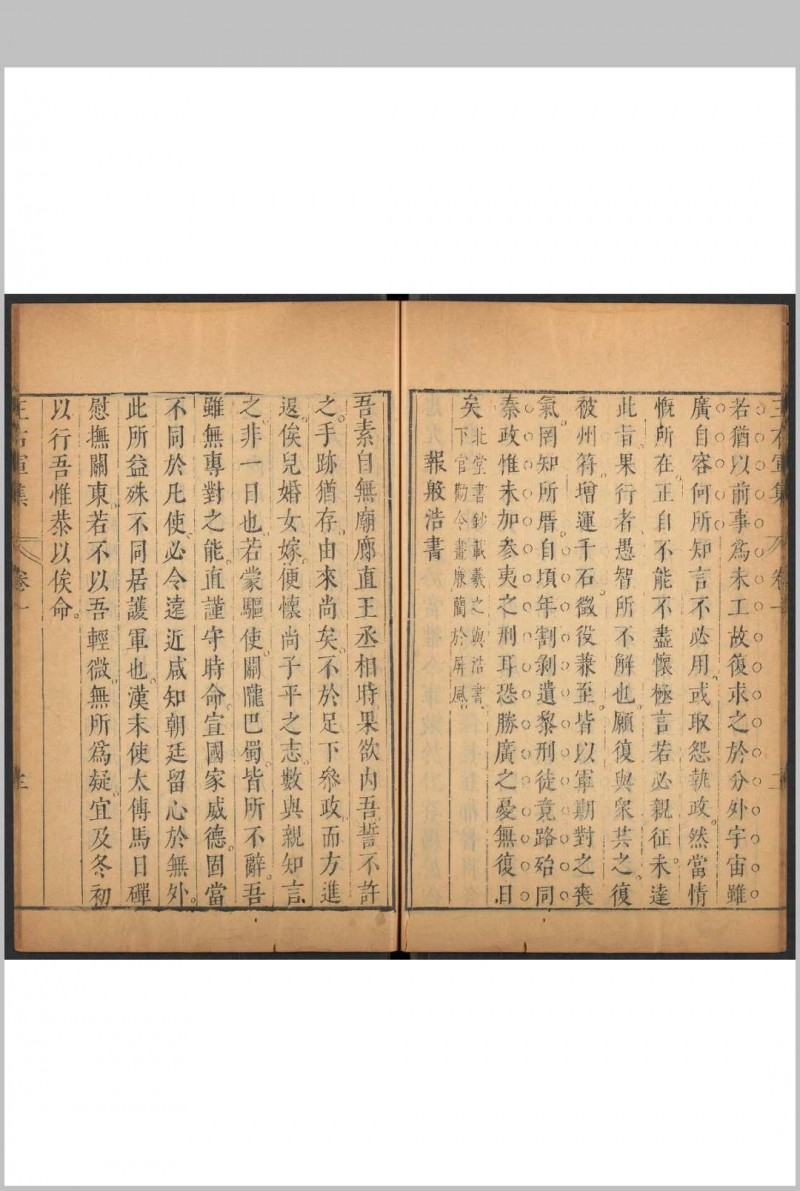 若猶以前事爲未工故復求之於分外宇宙雖
廣自容何所知言不必用或取怨執政然當情
慨所在正自不能不盡懷極言若必親征未達
此旨果行者愚智所不解也願復與衆共之復
被州符增運千石徵役兼至皆以軍期對之喪
氣罔知所厝自頃年割剝遺黎刑徒竟路殆同
秦政惟未加參夷之刑耳恐勝廣之憂無復日
矣
北堂書鈔載羲之與浩書
下官勸令畫廉藺於屏風
報殷浩書
吾素自無廟廊直王丞相時果欲內吾誓不許
之手跡猶存由來尚矣不於足下參政而方進
退俟兒婚女嫁便懷尚子平之志數與親知言
之非一日也若蒙驅使關隴巴蜀皆所不辭吾
雖無專對之能直謹守時命宣國家威德固當
不同於凡使必令遠近咸知朝廷留心於無外
此所益殊不同居護軍也漢末使太傅馬日磾
慰撫關東若不以吾輕微無所爲疑宜及冬初
以行吾惟恭以俟命
王右軍集
卷一